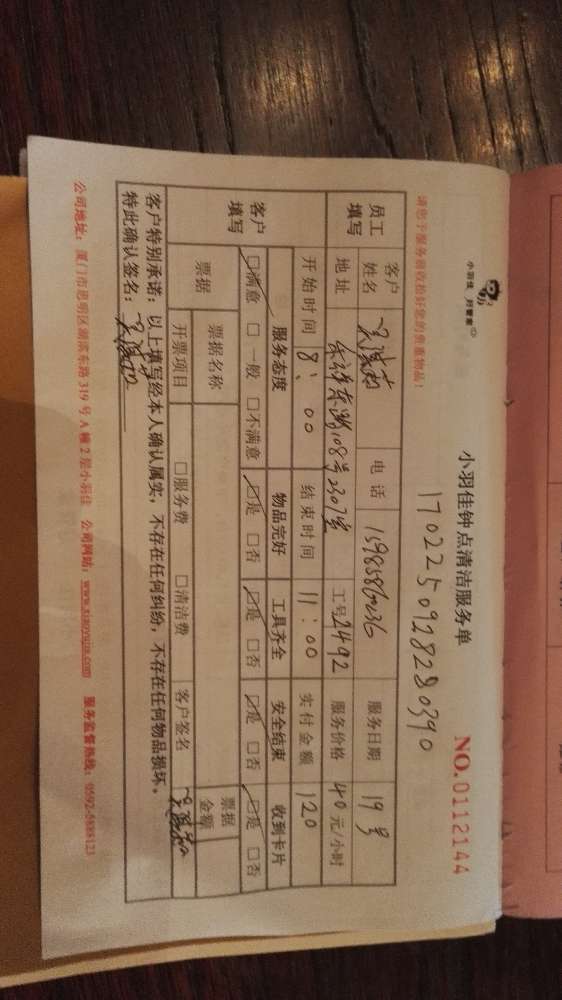 小羽佳 好管家
小羽佳钟点清洁服务单
NO.0112144
1702250928280390
请您于服务前收检好您的贵重物品！
员工填写
客户姓名 电话 服务日期 19号
地址 108号2307室 工号 2492 服务价格 40元/小时
开始时间 8:00 结束时间 11:00 实付金额 120
客户填写
服务态度 物品完好 工具齐全 安全结束 收到卡片
☑满意 □一般 □不满意 ☑是 □否 ☑是 □否 ☑是 □否 ☑是 □否
票据 票据名称 票据金额
开票项目 □服务费 □清洁费 客户签名
客户特别承诺：以上填写经本人确认属实，不存在任何纠纷，不存在任何物品损坏。
特此确认签名：
公司地址：厦门市思明区湖滨东路319号A幢2层小羽佳 公司网站：www.xiaoyujia.com 服务监督热线：0592-5888123